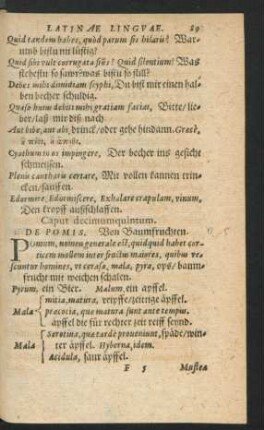 LATINAE LINGVAE. 89
Quid tandem habes, quòd parum sis hilaris? War-
umb bistu nit lüstig?
Quid sibi vult corrugata frõs? Quid silentium? Was
sichestu so sawr? was bistu so still?
Debes mihi dimidium scyphi, Du bist mir einen hal-
ben becher schuldig.
Quæso hunc debiti mihi gratiam facias, Bitte/lie-
ber/laß mir diß nach
Aut bibe, aut abi, drinck/oder gehe hindann. Græcè,
Cyathum in os impingere, Der becher ins gesicht
schmeissen.
Plenis cantharis certare, Mit vollen kannen trin-
cken/sauffen
Edormire, Edormiscere, Exhalare crapulam, vinum,
Den kropff außschlaffen.
Caput decimumquintum.
DE POMIS. Von Baumfruchten
POmum, nomen generale est, quidquid habet cor-
ticem mollem inter fructus maiores, quibus ve-
scuntur homines, vt cerasa, mala, pyra, ops/baum-
frucht mit weichen schalen.
Pyrum, ein Bier. Malum, ein apffel.
mitia, matura, reiffe/zeitige äpffel.
Mala præcocia, quæ matura sunt ante tempus,
äpffel die für rechter zeit reiff seynd.
Serotina, quæ tardè proueniunt, späde/win-
Mala ter äpffel. Hyberna, idem.
Acidula, saur äpffel.
F 5 Mustea